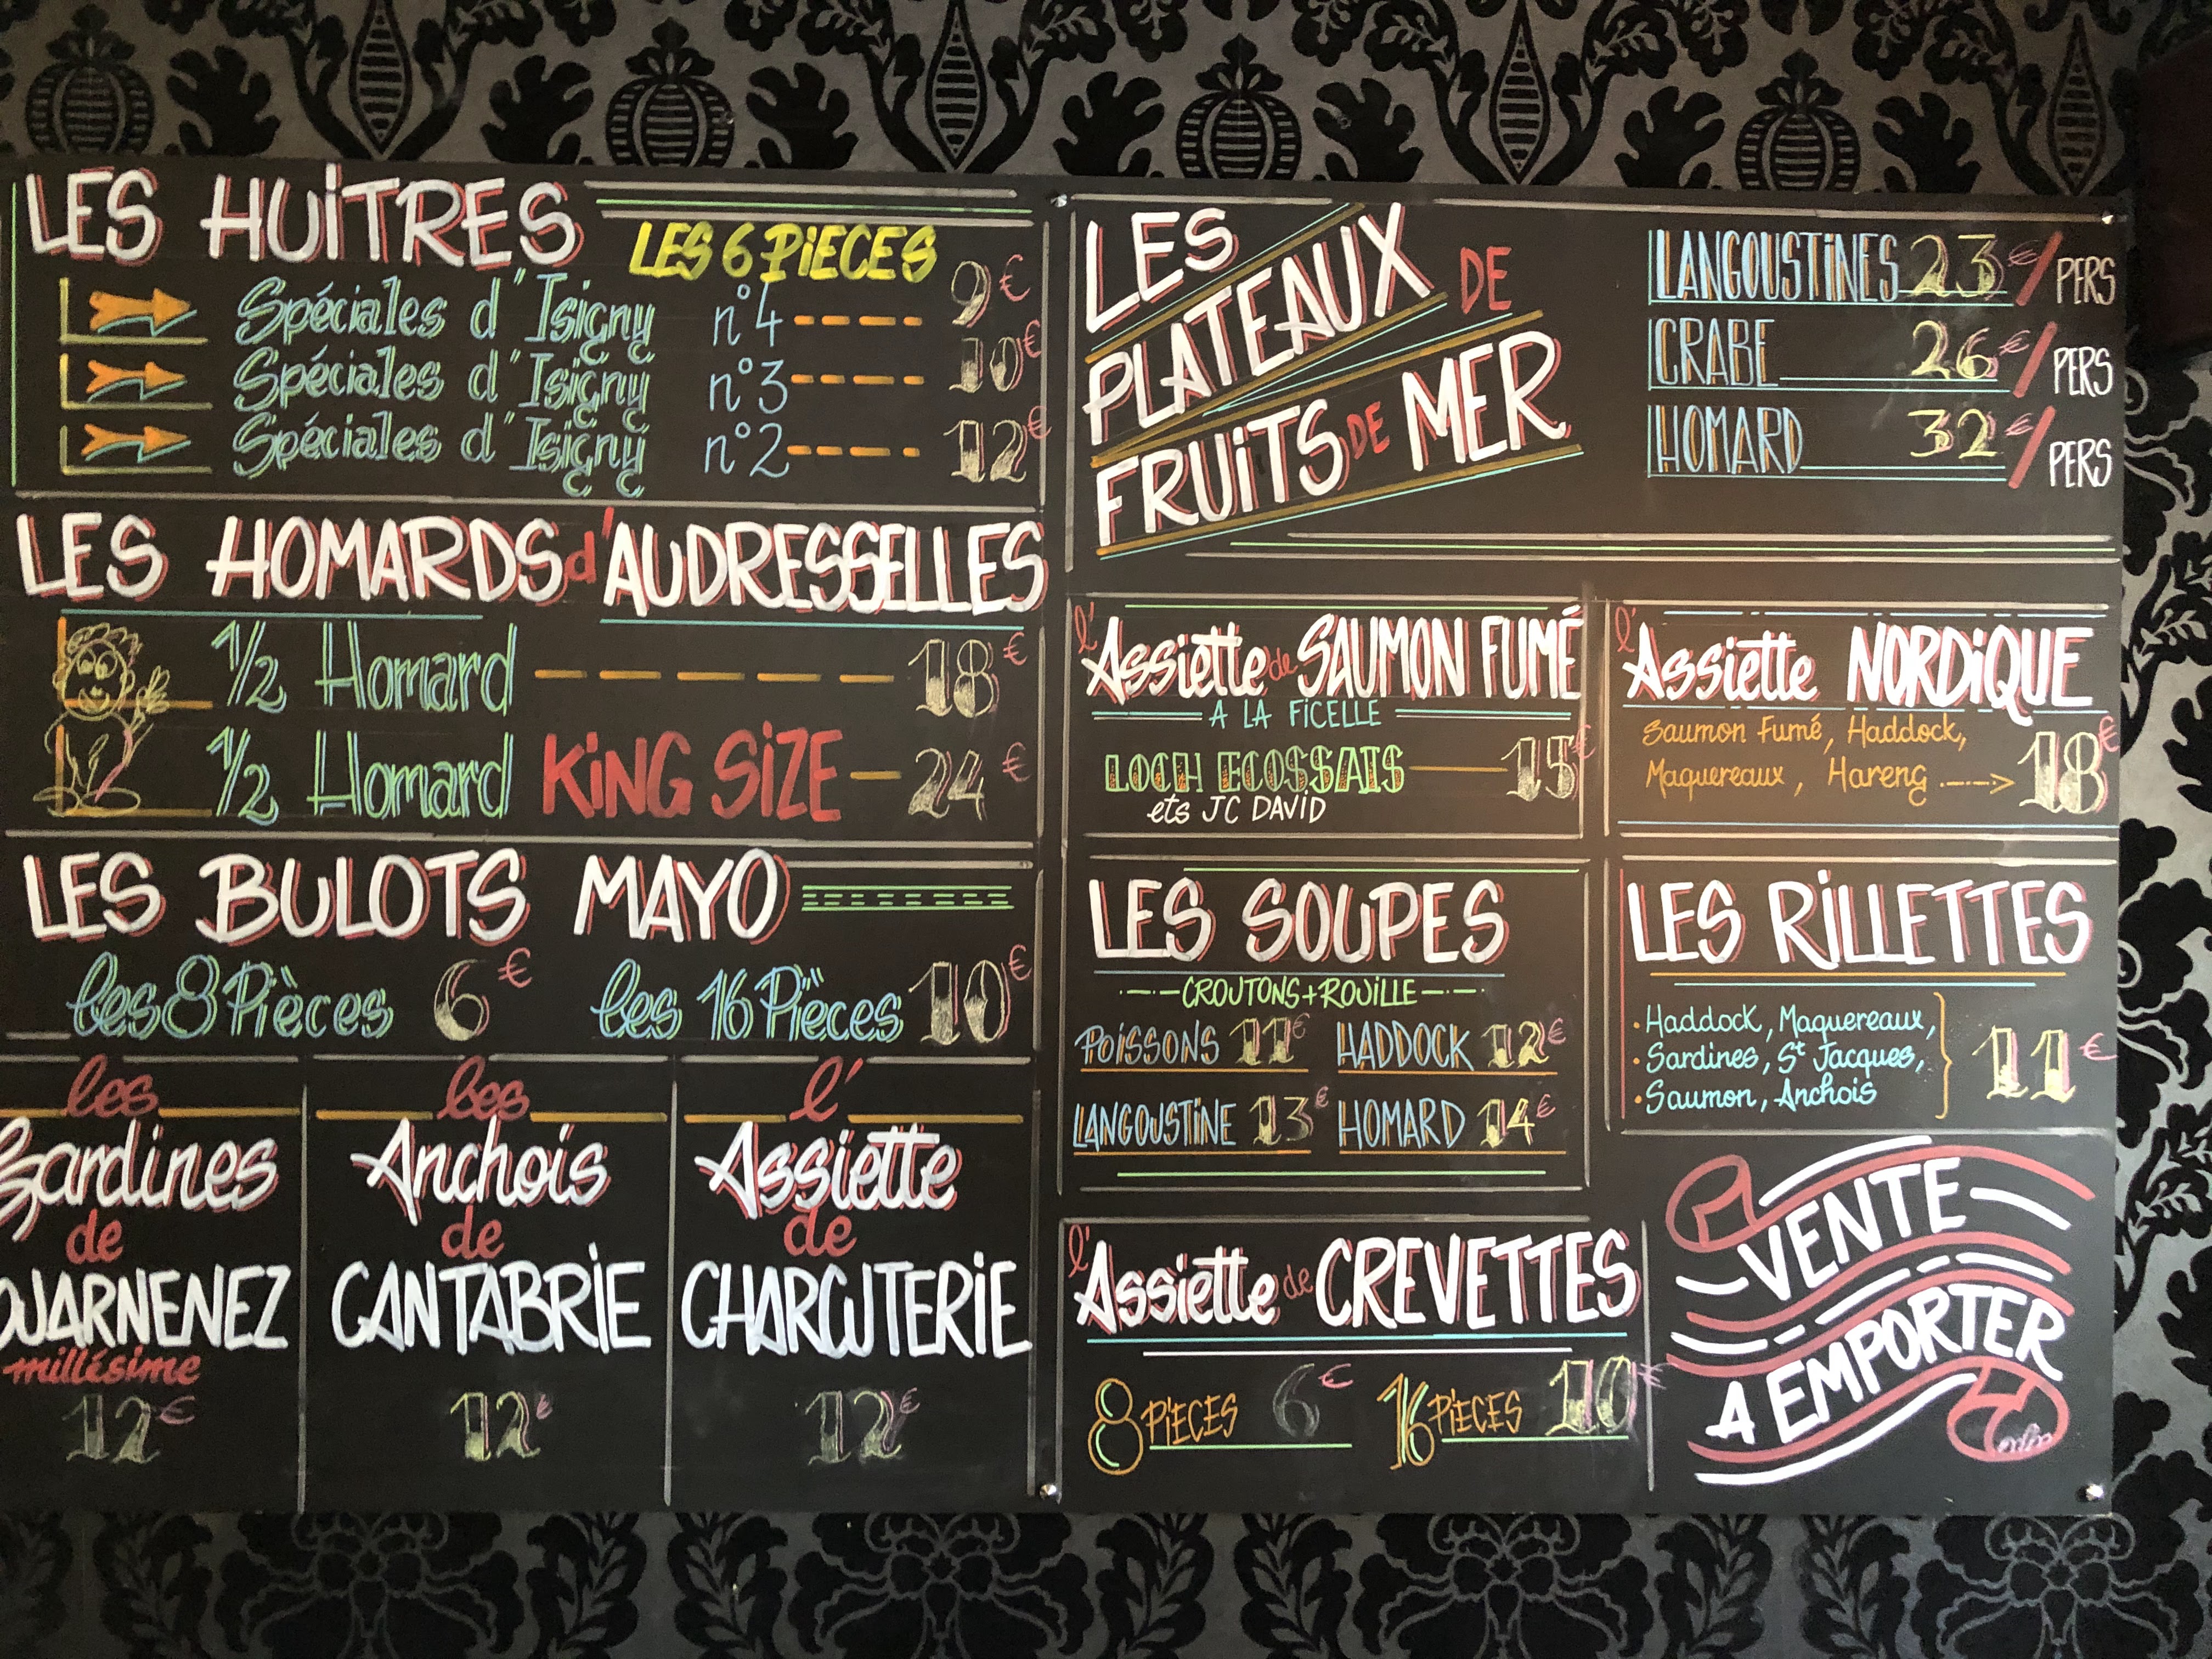 LES HUiTRES
LES 6 PiECES
Spéciales d'Isigny n°4 9€
Spéciales d'Isigny n°3 10€
Spéciales d'Isigny n°2 12€
LES HOMARDS d'AUDRESSELLES
1/2 Homard 18€
1/2 Homard KiNG SiZE 24€
LES BULOTS MAYO
les 8 Pièces 6€ les 16 Pièces 10€
les
Sardines
de
OUARNENEZ
millésime
12€
les
Anchois
de
CANTABRIE
12€
l'
Assiette
de
CHARCUTERIE
12€
LES
PLATEAUX DE
FRUiTS DE MER
LANGOUSTiNES 23€/PERS
CRABE 26€/PERS
HOMARD 32€/PERS
l'Assiette de SAUMON FUMÉ
A LA FiCELLE
LOCH ECOSSAIS 15€
ets JC DAViD
l'Assiette NORDiQUE
Saumon Fumé, Haddock,
Maquereaux, Hareng 18€
LES SOUPES
CROUTONS+ROUiLLE
POiSSONS 11€ HADDOCK 12€
LANGOUSTiNE 13€ HOMARD 14€
LES RiLLETTES
• Haddock, Maquereaux,
• Sardines, St Jacques, 11€
• Saumon, Anchois
l'Assiette de CREVETTES
8 PiECES 6€ 16 PiECES 10€
VENTE
A EMPORTER